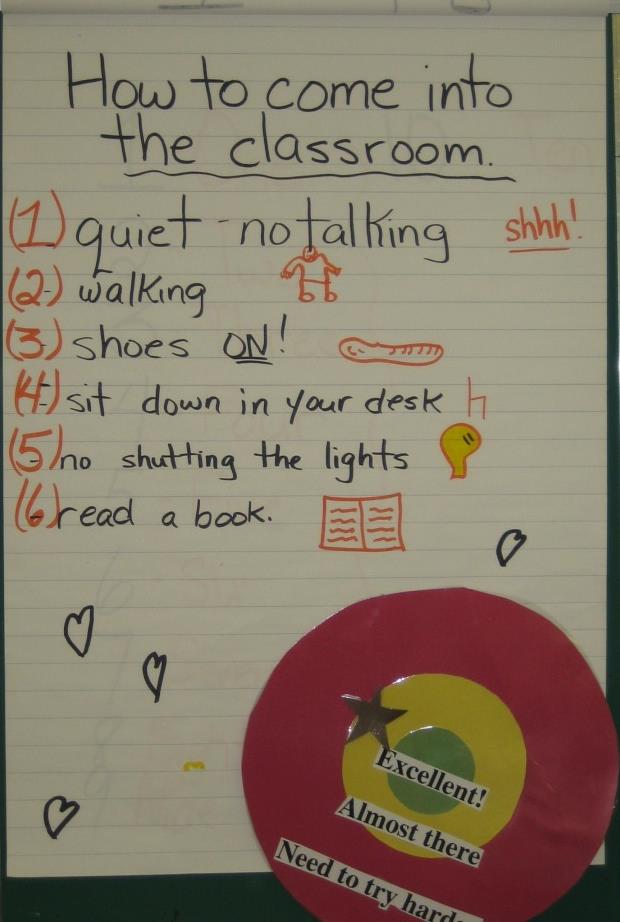 How to come into
the classroom.
(1) quiet - no talking shhh!
(2) walking
(3) shoes ON!
(4) sit down in your desk
(5) no shutting the lights
(6) read a book.
Excellent!
Almost there
Need to try hard